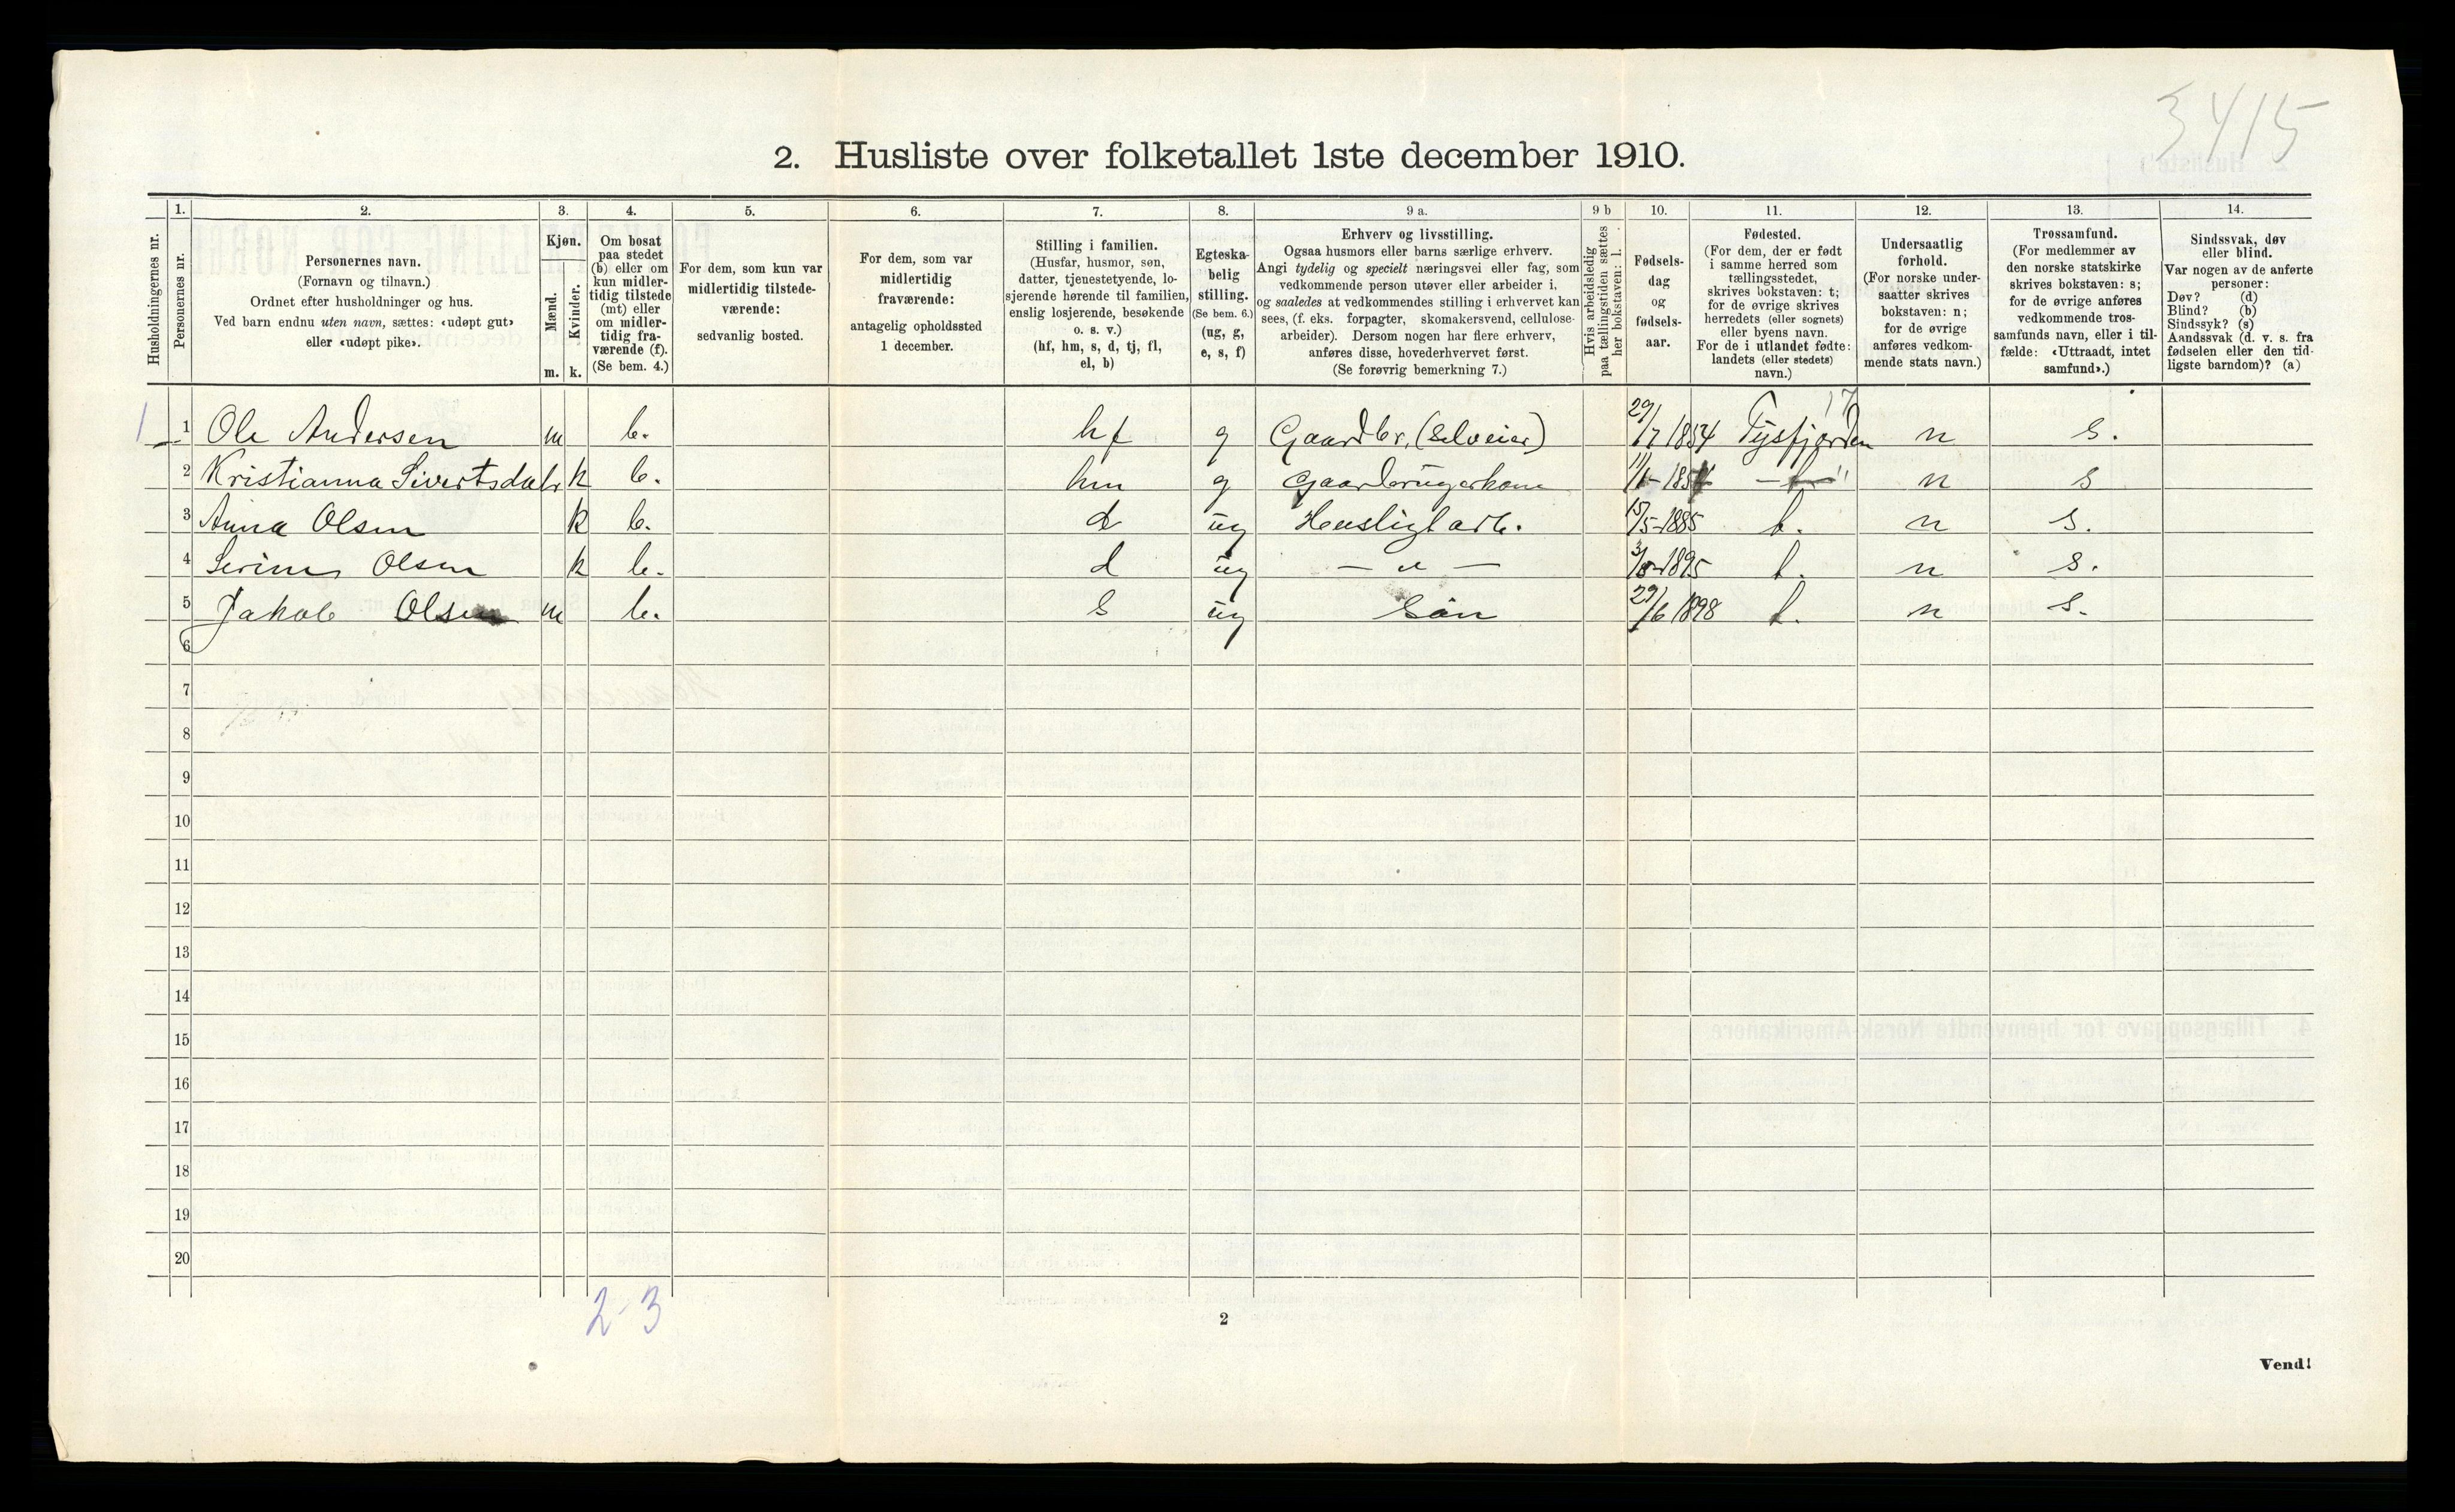 3415
2. Husliste over folketallet 1ste december 1910.
Husholdningernes nr.
1.
Personernes nr.
2.
Personernes navn.
(Fornavn og tilnavn.)
Ordnet efter husholdninger og hus.
Ved barn endnu uten navn, sættes: «udøpt gut»
eller «udøpt pike».
3.
Kjøn.
Mænd.
Kvinder.
m. k.
4.
Om bosat
paa stedet
(b) eller om
kun midler-
tidig tilstede
(mt) eller
om midler-
tidig fra-
værende (f).
(Se bem. 4.)
5.
For dem, som kun var
midlertidig tilstede-
værende:
sedvanlig bosted.
6.
For dem, som var
midlertidig
fraværende:
antagelig opholdssted
1 december.
7.
Stilling i familien.
(Husfar, husmor, søn,
datter, tjenestetyende, lo-
sjerende hørende til familien,
enslig losjerende, besøkende
o. s. v.)
(hf, hm, s, d, tj, fl,
el, b)
8.
Egteska-
belig
stilling.
(Se bem. 6.)
(ug, g,
e, s, f)
9 a.
Erhverv og livsstilling.
Ogsaa husmors eller barns særlige erhverv.
Angi tydelig og specielt næringsvei eller fag, som
vedkommende person utøver eller arbeider i,
og saaledes at vedkommendes stilling i erhvervet kan
sees, (f. eks. forpagter, skomakersvend, cellulose-
arbeider). Dersom nogen har flere erhverv,
anføres disse, hovederhvervet først.
(Se forøvrig bemerkning 7.)
9 b
Hvis arbeidsledig
paa tællingstiden sættes
her bokstaven: l.
10.
Fødsels-
dag
og
fødsels-
aar.
11.
Fødested.
(For dem, der er født
i samme herred som
tællingsstedet,
skrives bokstaven: t;
for de øvrige skrives
herredets (eller sognets)
eller byens navn.
For de i utlandet fødte:
landets (eller stedets)
navn.)
12.
Undersaatlig
forhold.
(For norske under-
saatter skrives
bokstaven: n;
for de øvrige
anføres vedkom-
mende stats navn.)
13.
Trossamfund.
(For medlemmer av
den norske statskirke
skrives bokstaven: s;
for de øvrige anføres
vedkommende tros-
samfunds navn, eller i til-
fælde: «Uttraadt, intet
samfund».)
14.
Sindssvak, døv
eller blind.
Var nogen av de anførte
personer:
Døv? (d)
Blind? (b)
Sindssyk? (s)
Aandssvak (d. v. s. fra
fødselen eller den tid-
ligste barndom)? (a)
1 1 Ole Andersen m b. hf g Gaardbr. (selveier) 29/7 1854 Tysfjorden 17 n s.
2 Kristianna Sivertsdatr k b. hm g Gaardbrugerkone n s
3 Anna Olsen k b. d ug Husligt arb. 15/5-1885 t. n s.
4 Olsen k b. d ug — " — 1895 t. n s.
5 Jakob Olsen m b. s ug Søn 29/6 1898 t. n s.
6
7
8
9
10
11
12
13
14
15
16
17
18
19
20
2-3
2
Vend!